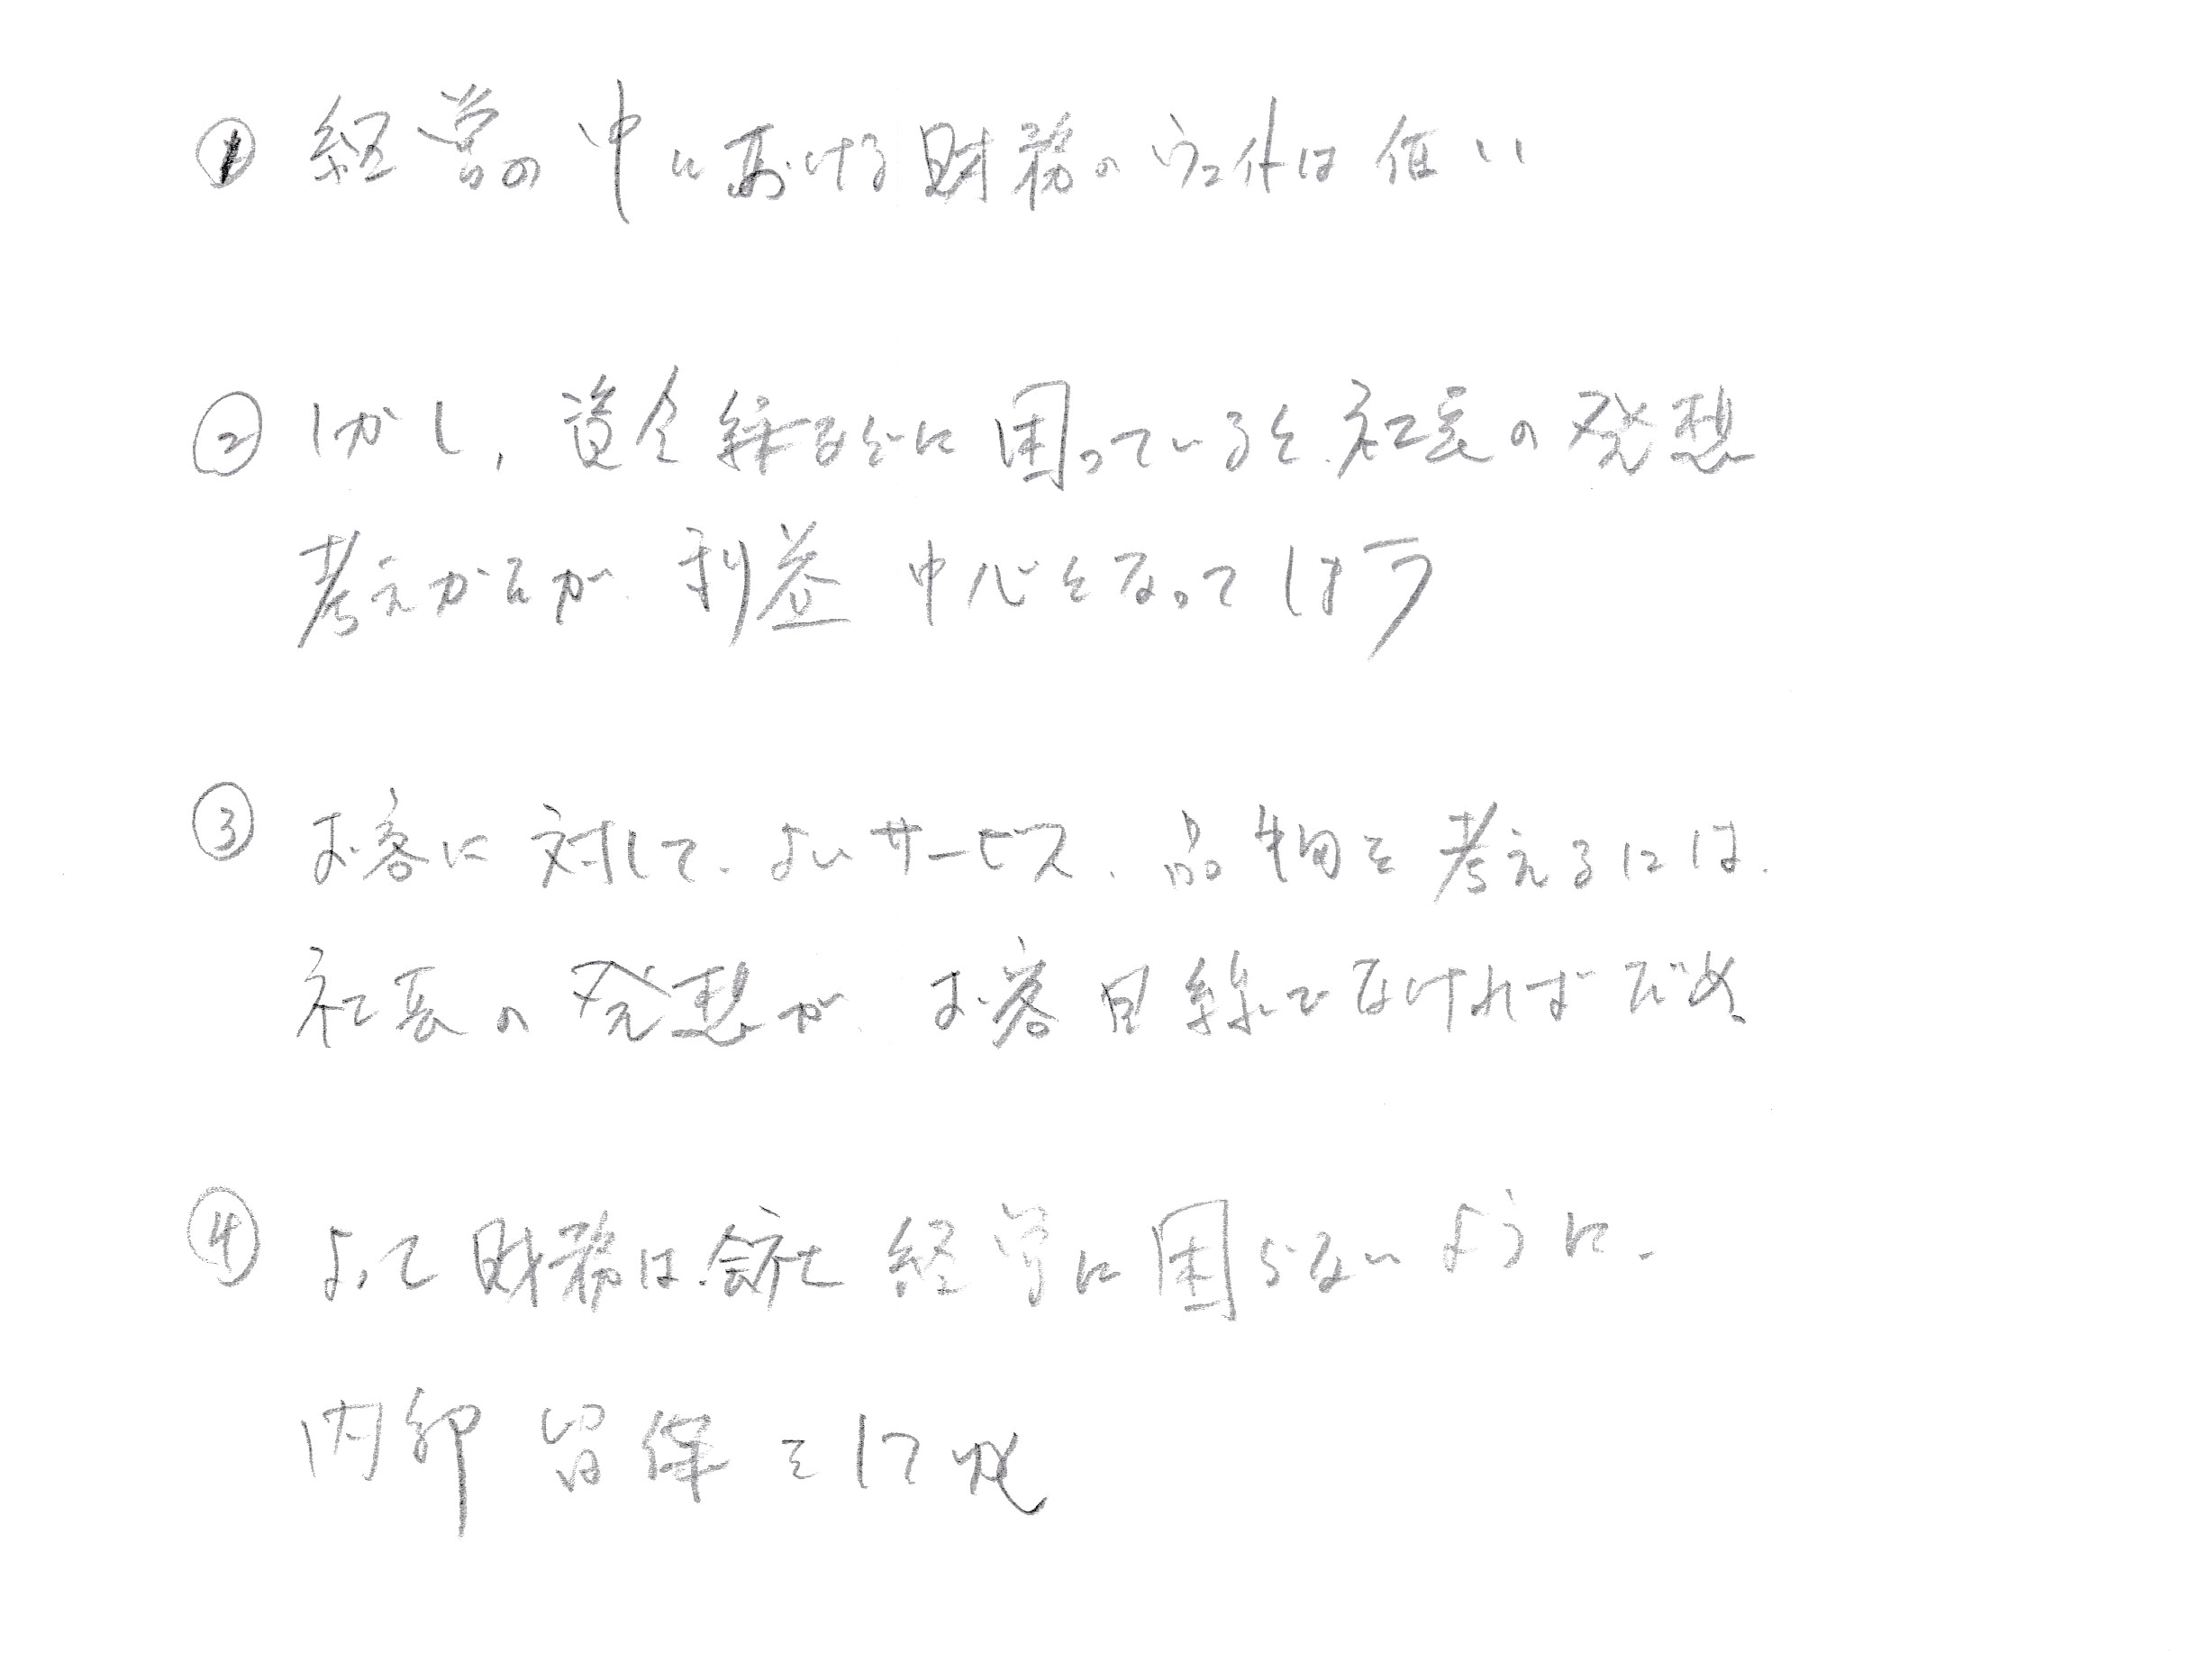 ① 経営の中における財務のウエイトは低い
② しかし、資金繰りなどに困っていると、社長の発想
考えかたが、利益中心となってしまう
③ お客に対して、よいサービス、品物を考えるには、
社長の発想が、お客目線でなければだめ
④ よって財務は、会社経営に困らないように、
内部留保をして